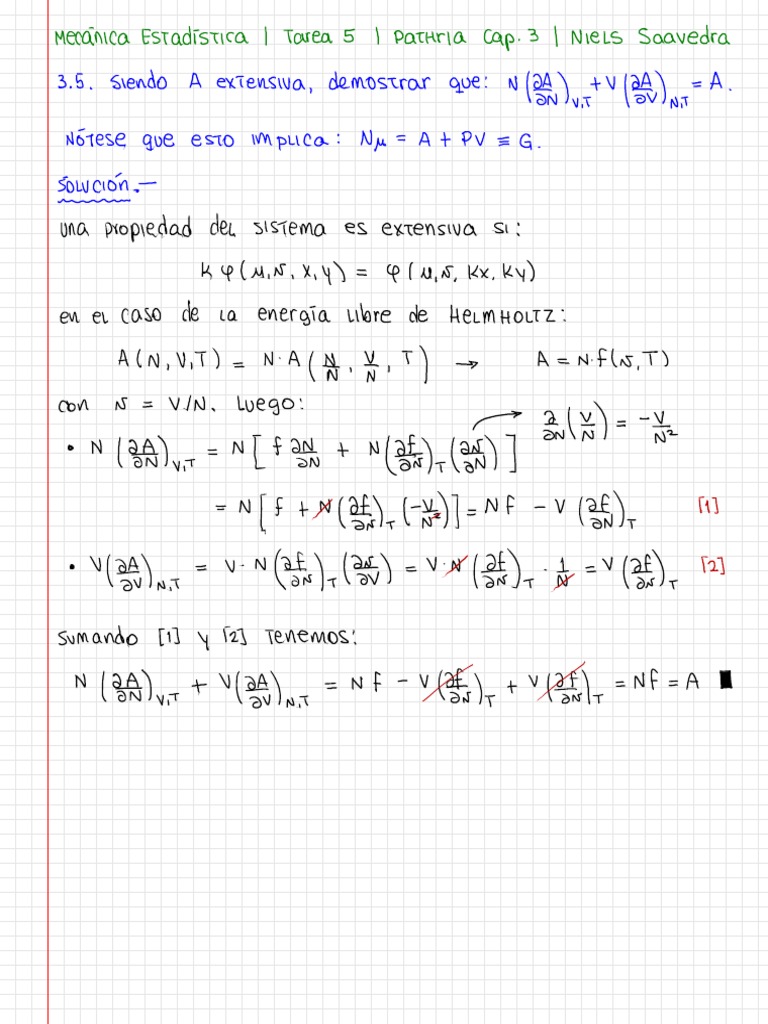 Mecánica Estadística | Tarea 5 | Pathria Cap. 3 | Niels Saavedra
3.5. Siendo A extensiva, demostrar que: N(∂A/∂N)_{V,T} + V(∂A/∂V)_{N,T} = A.
Nótese que esto implica: Nμ = A + PV ≡ G.
Solución.—
Una propiedad del sistema es extensiva si:
k φ(μ, v, x, y) = φ(μ, v, kx, ky)
en el caso de la energía libre de Helmholtz:
A(N, V, T) = N·A(N/N, V/N, T) → A = N·f(v, T)
con v = V/N. Luego:
∂/∂N (V/N) = -V/N²
• N(∂A/∂N)_{V,T} = N[f ∂N/∂N + N(∂f/∂v)_T (∂v/∂N)]
= N[f + N(∂f/∂v)_T (-V/N²)] = Nf - V(∂f/∂N)_T [1]
• V(∂A/∂V)_{N,T} = V·N(∂f/∂v)_T (∂v/∂V) = V·N(∂f/∂v)_T · 1/N = V(∂f/∂v)_T [2]
Sumando [1] y [2] tenemos:
N(∂A/∂N)_{V,T} + V(∂A/∂V)_{N,T} = Nf - V(∂f/∂v)_T + V(∂f/∂v)_T = Nf = A ■